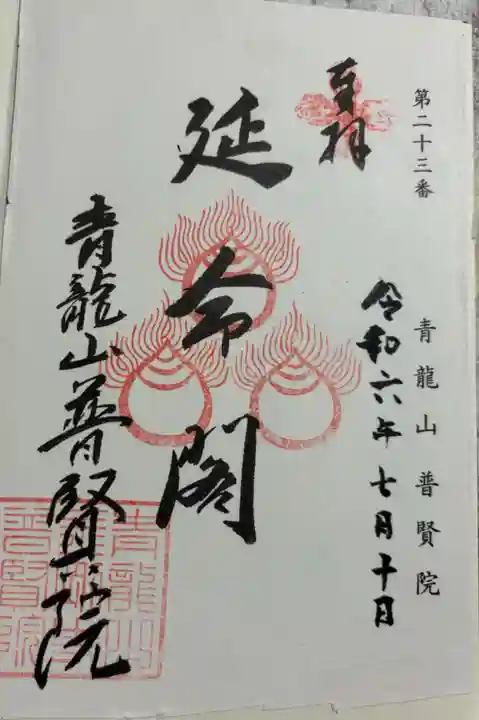 第二十三番 青龍山普賢院
奉拝
令和六年七月十日
延命閣
青龍山普賢院